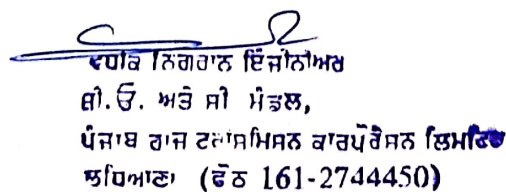 ਵਧੀਕ ਨਿਗਰਾਨ ਇੰਜੀਨੀਅਰ
ਜੀ.ਓ. ਅਤੇ ਸੀ ਮੰਡਲ,
ਪੰਜਾਬ ਰਾਜ ਟਰਾਂਸਮਿਸਨ ਕਾਰਪੋਰੇਸਨ ਲਿਮਟਿਡ
ਲੁਧਿਆਣਾ (ਫੋਨ 161-2744450)